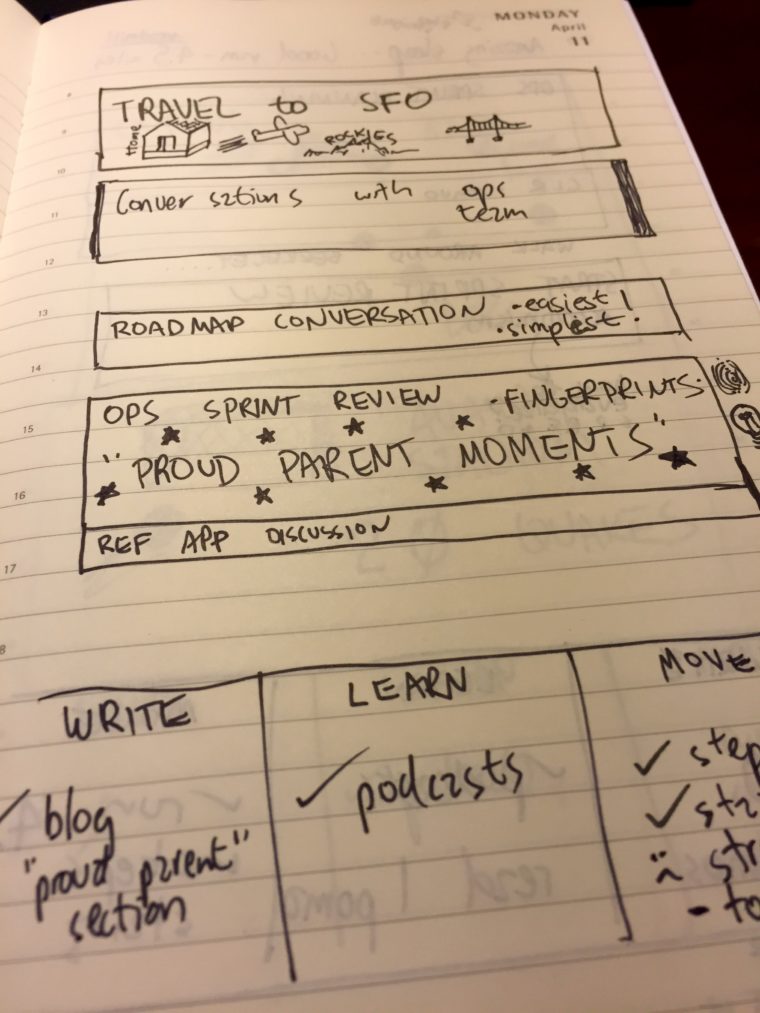 MONDAY
April
11
TRAVEL to SFO
Home
ROCKIES
9
10
Conversations with ops
11
team
12
13
ROADMAP CONVERSATION - easiest!
• simplest!
14
OPS SPRINT REVIEW - FINGERPRINTS
15
"PROUD PARENT MOMENTS"
16
REF APP DISCUSSION
17
8
WRITE
LEARN
MOVE
✓ blog
"proud parent"
section
✓ podcasts
✓ step
✓
-